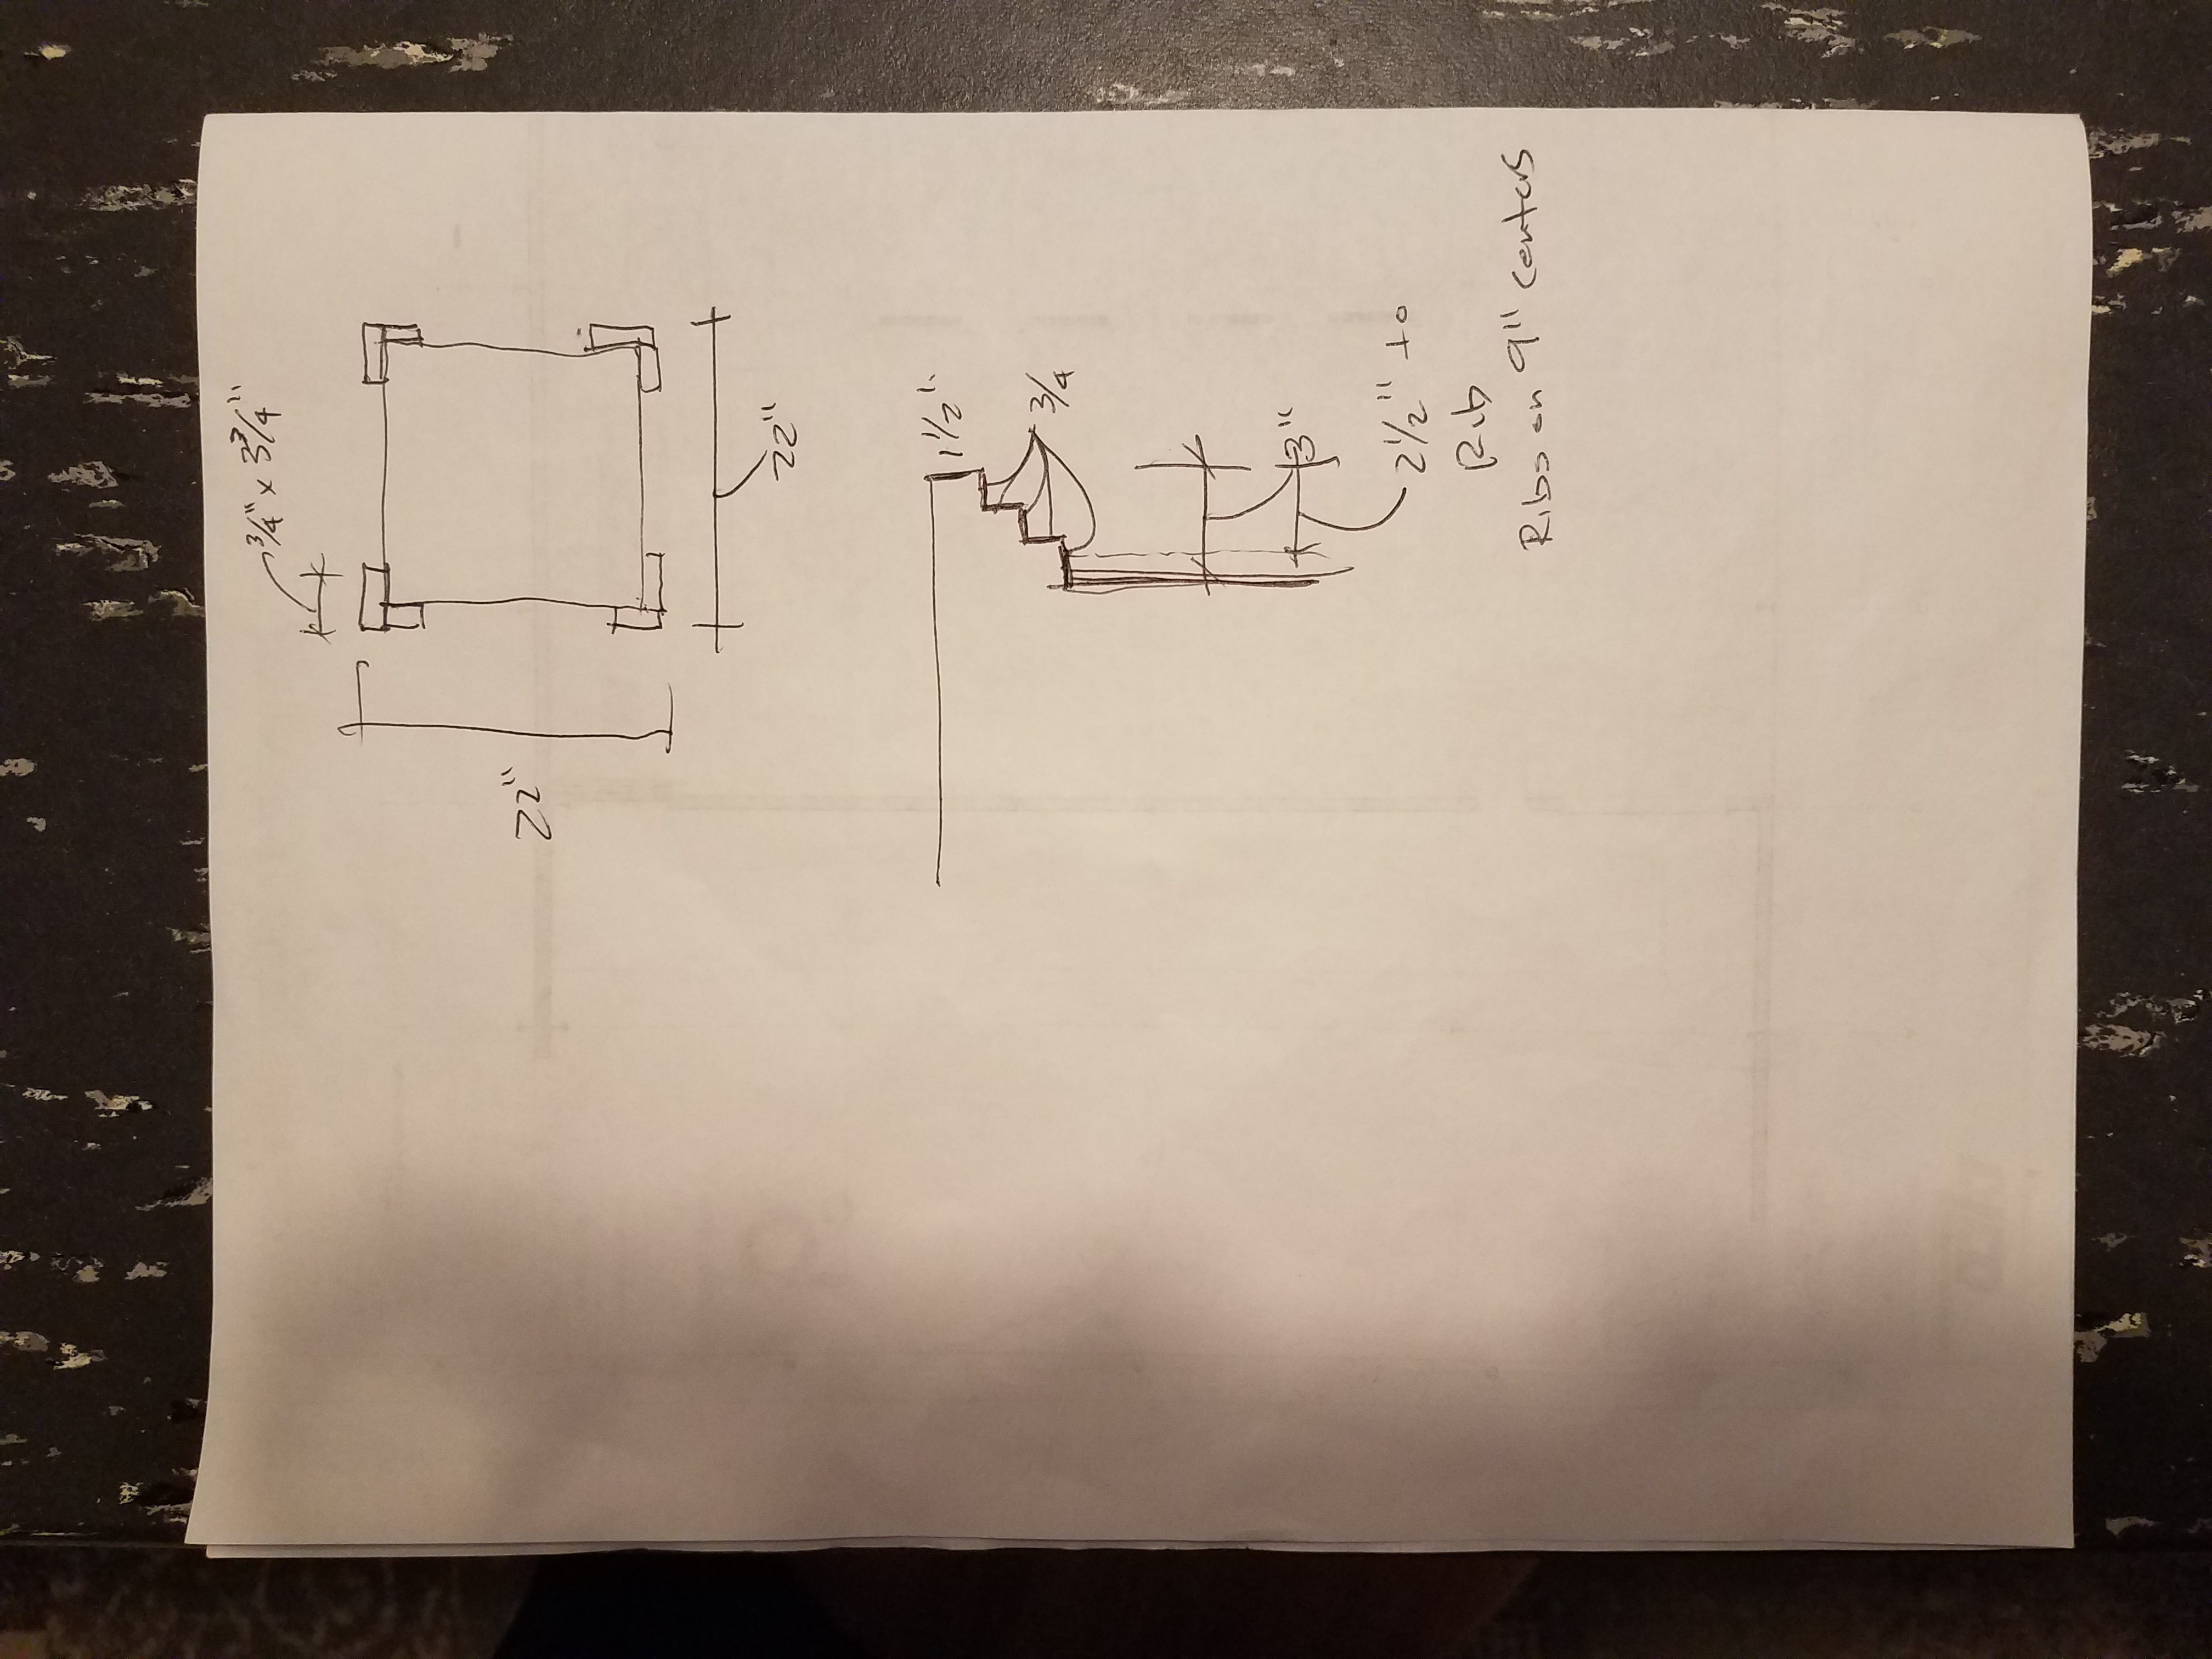 3/4" x 3 3/4"
22"
22"
1 1/2"
3/4
3"
2 1/2" to
Rib
Ribs on 9" centers